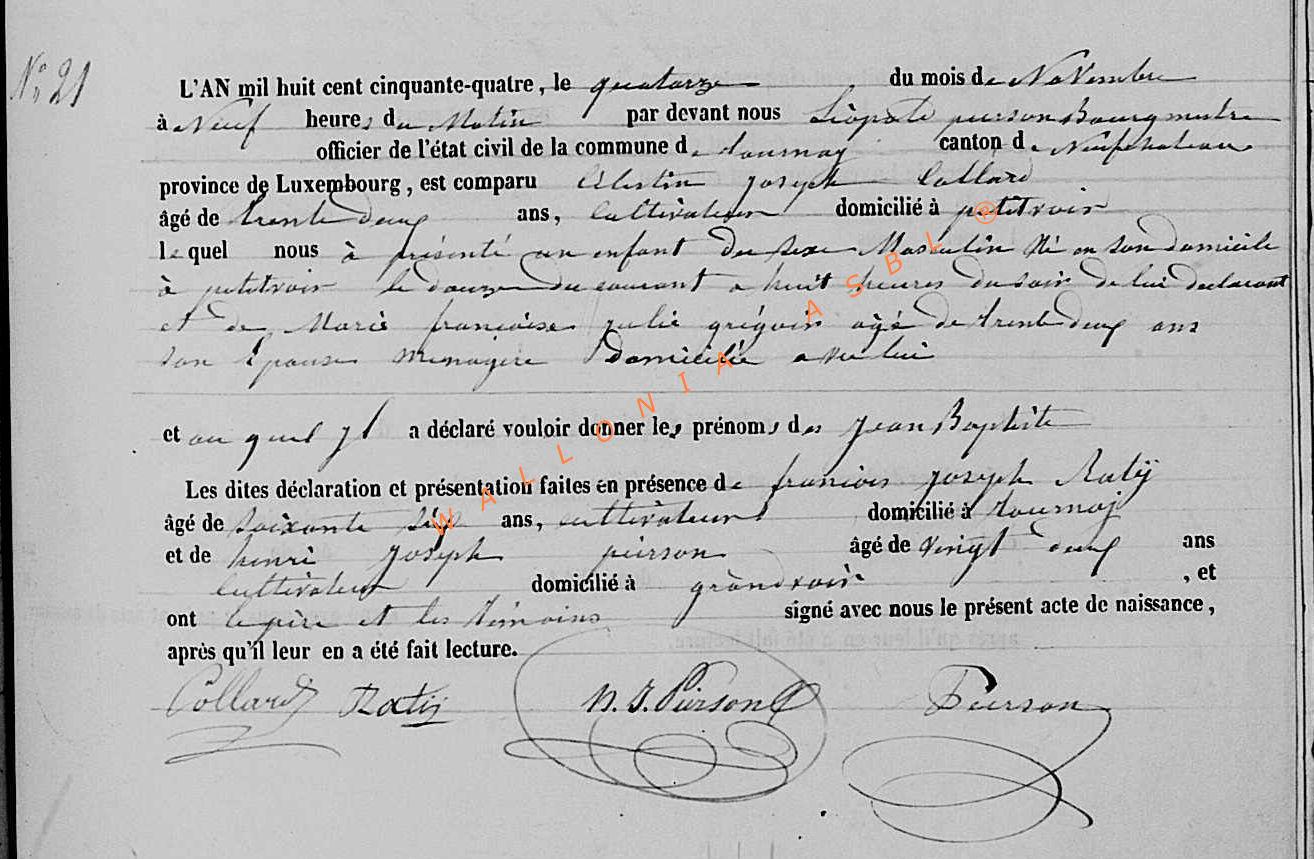 N° 21
L'AN mil huit cent cinquante-quatre, le quatorze du mois de Novembre
à Neuf heures du Matin par devant nous Léopold pierson Bourgmestre
officier de l'état civil de la commune de tournay canton de Neufchateau
province de Luxembourg, est comparu Célestin joseph Collard
âgé de trente deux ans, cultivateur domicilié à petitvoir
lequel nous à présenté un enfant du sexe Masculin Né en son domicile
à petitvoir le douze du courant a huit heures du soir de lui declarant
et de Marie francoise julie grégoir agé de trente deux ans
son Epouse menagère Domicilié avec lui
et au quel il a déclaré vouloir donner les prénoms de jean Baptiste
Les dites déclaration et présentation faites en présence de francois joseph Ratÿ
âgé de soixante ans, cultivateur domicilié à tournay
et de henri joseph pierson âgé de vingt deux ans
cultivateur domicilié à grandvoir , et
ont le père et les témoins signé avec nous le présent acte de naissance,
après qu'il leur en a été fait lecture.
Collard Ratÿ h. J. Pierson Pierson
WALLONIA ASBL ®